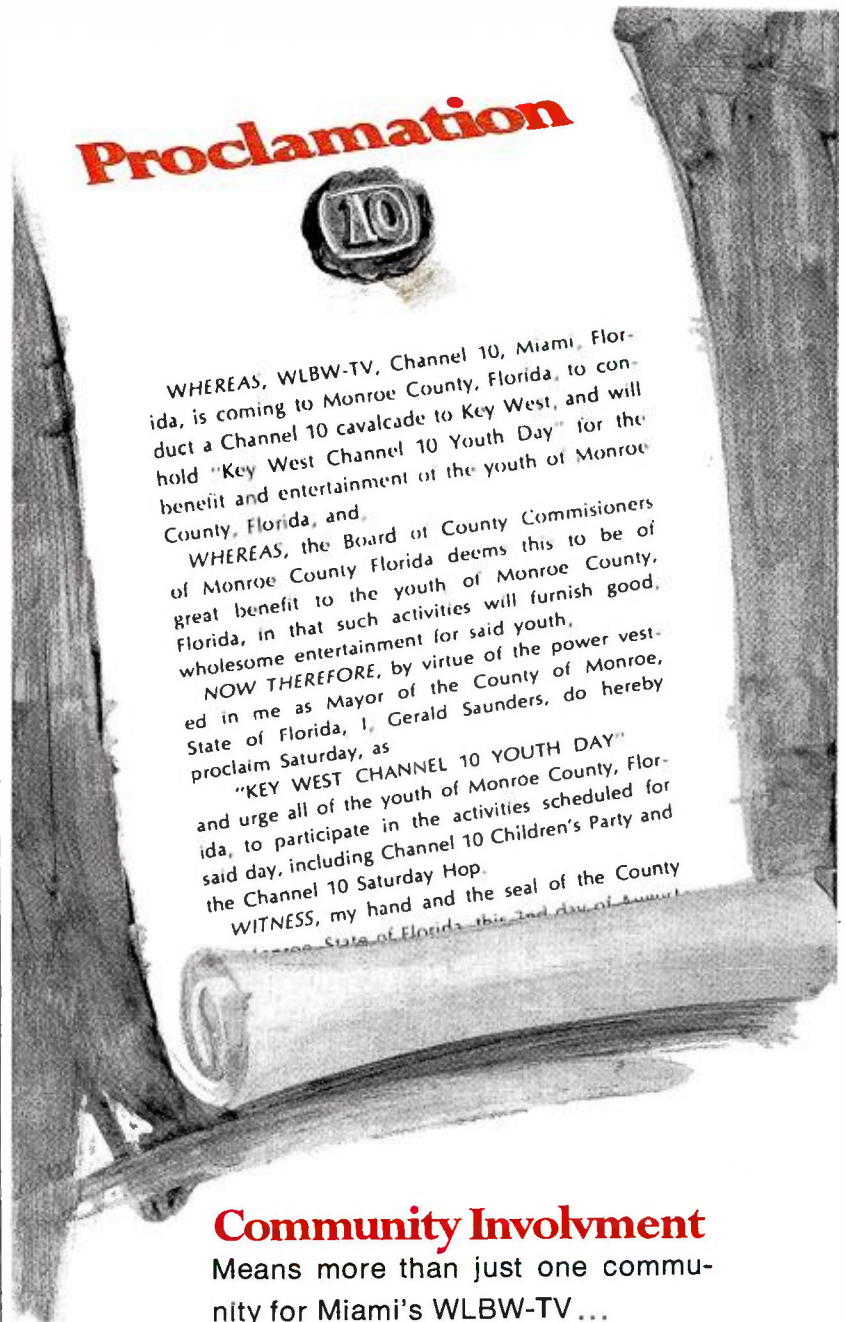 Proclamation
10
WHEREAS, WLBW-TV, Channel 10, Miami, Flor-
ida, is coming to Monroe County, Florida, to con-
duct a Channel 10 cavalcade to Key West, and will
hold "Key West Channel 10 Youth Day" for the
benefit and entertainment of the youth of Monroe
County, Florida, and,
WHEREAS, the Board of County Commisioners
of Monroe County Florida deems this to be of
great benefit to the youth of Monroe County,
Florida, in that such activities will furnish good,
wholesome entertainment for said youth,
NOW THEREFORE, by virtue of the power vest-
ed in me as Mayor of the County of Monroe,
State of Florida, I, Gerald Saunders, do hereby
proclaim Saturday, as
"KEY WEST CHANNEL 10 YOUTH DAY"
and urge all of the youth of Monroe County, Flor-
ida, to participate in the activities scheduled for
said day, including Channel 10 Children's Party and
the Channel 10 Saturday Hop.
WITNESS, my hand and the seal of the County
Monroe, State of Florida, this 2nd day of August
Community Involvment
Means more than just one commu-
nity for Miami's WLBW-TV...